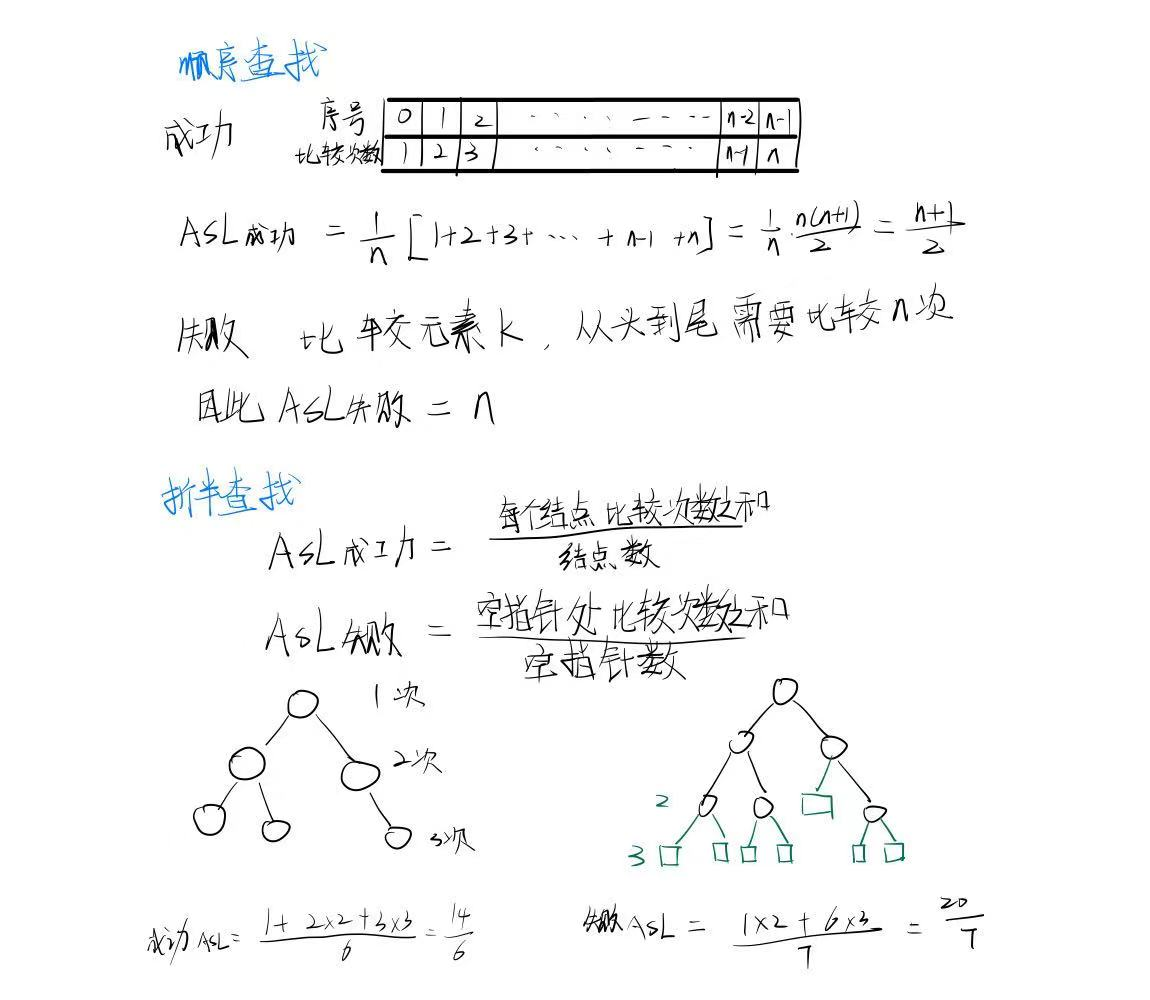 顺序查找
成功 序号 0 1 2 ······ — ---- n-2 n-1
比较次数 1 2 3 ······ - --- n-1 n
ASL成功 = 1/n [1+2+3+ ··· + n-1 +n] = 1/n · n(n+1)/2 = n+1/2
失败 比较元素k , 从头到尾需要比较n次
因此 ASL失败 = n
折半查找
ASL成功 = 每个结点比较次数之和/结点数
ASL失败 = 空指针处比较次数之和/空指针数
1次
2次
3次
2
3
成功ASL = 1+2×2+3×3/6 = 14/6
失败ASL = 1×2+6×3/7 = 20/7